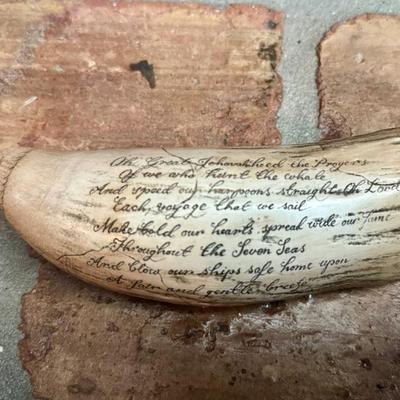 Oh, Great Jehovah heed the Prayers
Of we who hunt the whale
And speed our harpoons straight Oh Lord
Each voyage that we sail
Make bold our hearts spread wide our fame
Throughout the Seven Seas
And blow our ships safe home upon
A fair and gentle breeze